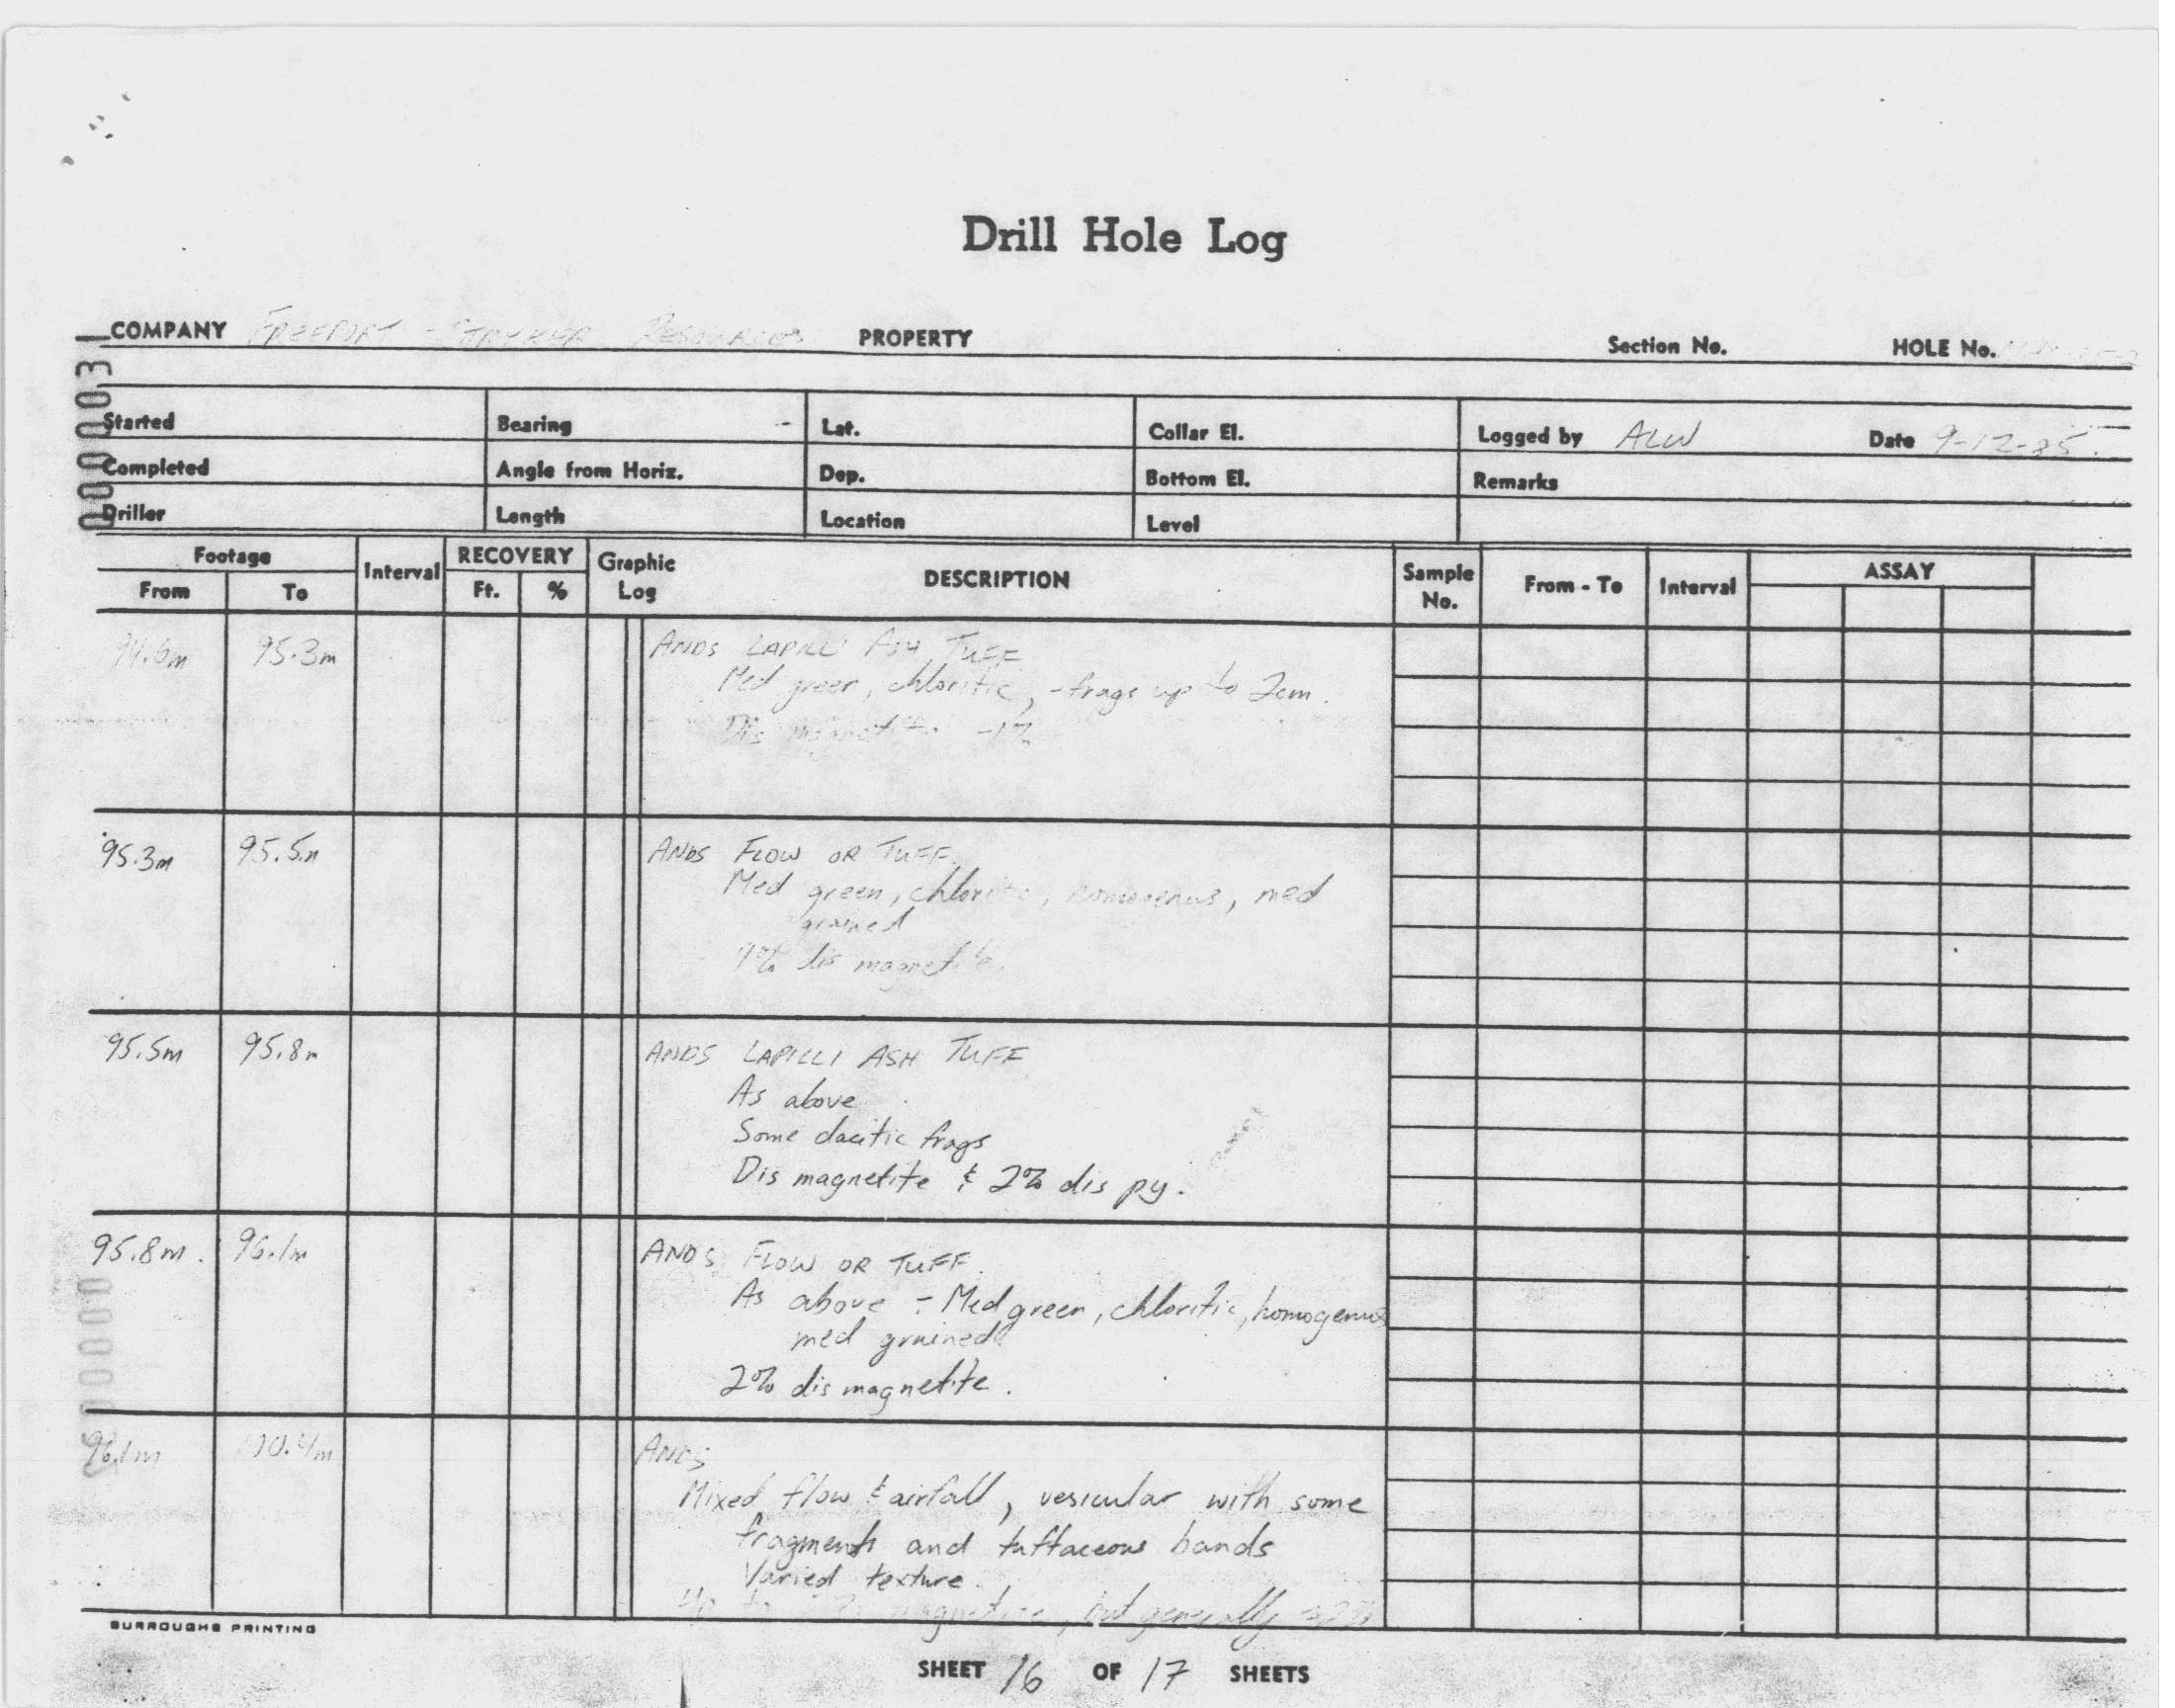 Drill Hole Log
COMPANY FREEPORT - STRYKER RESOURCES PROPERTY Section No. HOLE No.
Started Bearing Lat. Collar El. Logged by ALW Date 9-12-85
Completed Angle from Horiz. Dep. Bottom El. Remarks
Driller Length Location Level
Footage Interval RECOVERY Graphic Log DESCRIPTION Sample No. From - To Interval ASSAY
From To Ft. %
94.6m 95.3m ANDS LAPILLI ASH TUFF
Med green, chloritic, - frags up to 2cm.
Dis magnetite -1%
95.3m 95.5m ANDS FLOW OR TUFF
Med green, chloritic, homogenus, med
grained
dis magnetite.
95.5m 95.8m ANDS LAPILLI ASH TUFF
As above
Some dacitic frags
Dis magnetite & 2% dis py.
95.8m. 96.1m ANDS FLOW OR TUFF.
As above - Med green, chloritic, homogenus
med grained
2% dis magnetite.
96.1m 100.4m ANDS
Mixed flow & airfall, vesicular with some
fragments and tuffaceous bands
Varied texture.
Up to magnetite, but generally
BURROUGHS PRINTING
SHEET 16 OF 17 SHEETS